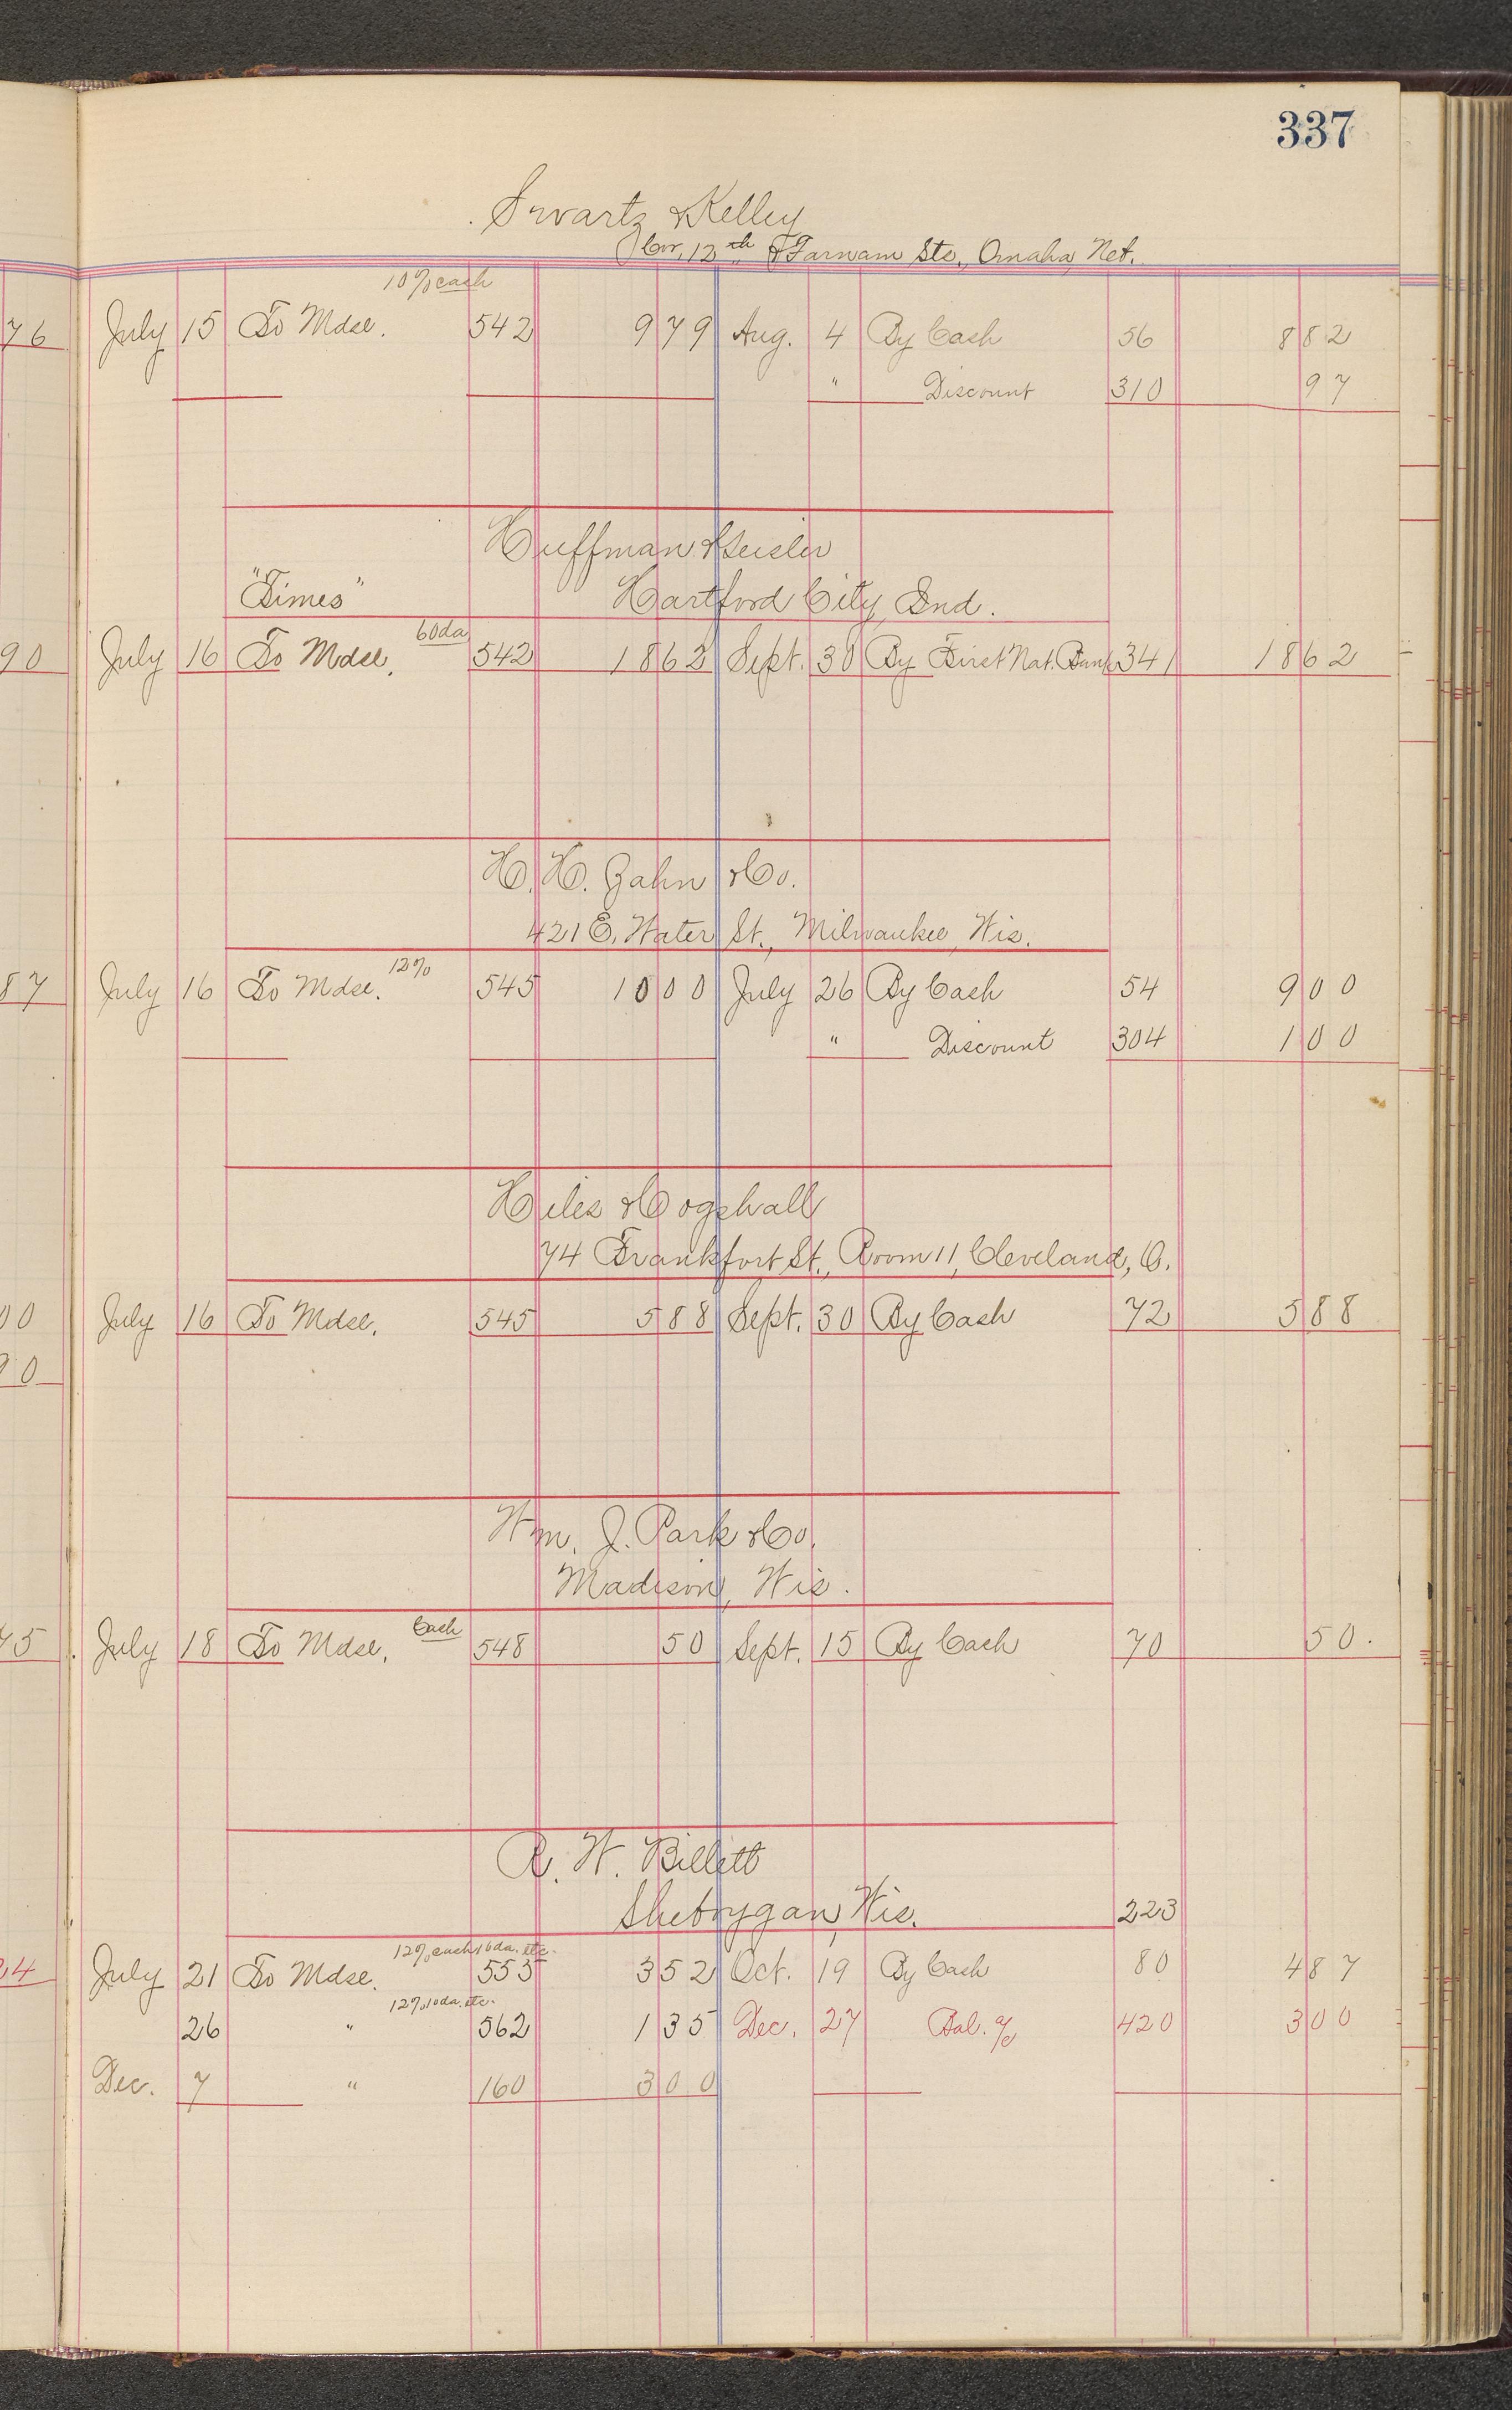 337
Swartz & Kelley
Cor. 12th & Farnam Sts., Omaha, Neb.
10% cash
76 July 15 To Mdse. 542 9 79 Aug. 4 By Cash 56 8 82
" Discount 310 97
Huffman & Geisler
"Times" Hartford City, Ind.
60 da
90 July 16 To Mdse. 542 18 62 Sept. 30 By First Nat. Bank 341 18 62
H. H. Zahn & Co.
421 E. Water St., Milwaukee, Wis.
12%
87 July 16 To Mdse. 545 10 00 July 26 By Cash 54 9 00
" Discount 304 1 00
Hiles & Cogshall
74 Frankfort St., Room 11, Cleveland, O.
00 July 16 To Mdse. 545 5 88 Sept. 30 By Cash 72 5 88
90
Wm. J. Park & Co.
Madison, Wis.
Cash
45 July 18 To Mdse. 548 50 Sept. 15 By Cash 70 50.
R. W. Billett
Sheboygan, Wis. 223
12% cash 10 da. etc.
24 July 21 To Mdse. 553 3 52 Oct. 19 By Cash 80 4 87
12% 10 da. etc.
26 " 562 1 35 Dec. 27 Bal. a/c 420 3 00
Dec. 7 " 160 3 00